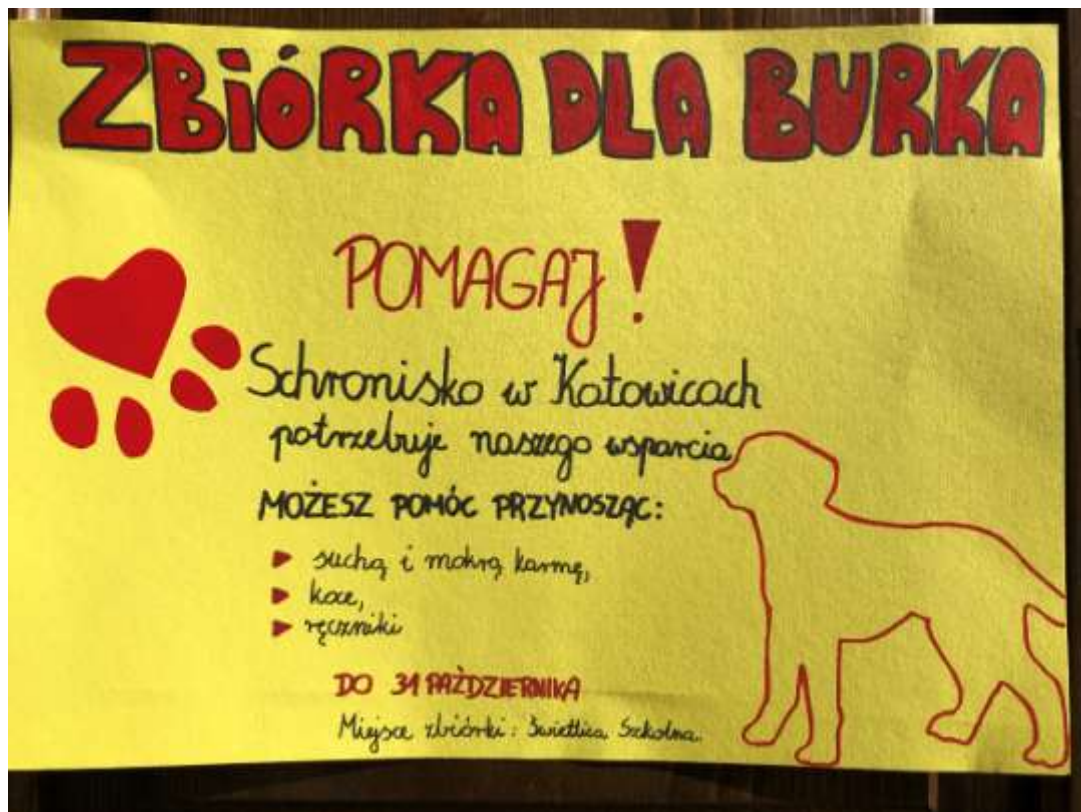 ZBiÓRKA DLA BURKA
POMAGAJ!
Schronisko w Katowicach
potrzebuje naszego wsparcia
MOŻESZ POMÓC PRZYNOSZĄC:
suchą i mokrą karmę,
koce,
ręczniki
DO 31 PAŹDZIERNIKA
Miejsce zbiórki: Świetlica Szkolna.